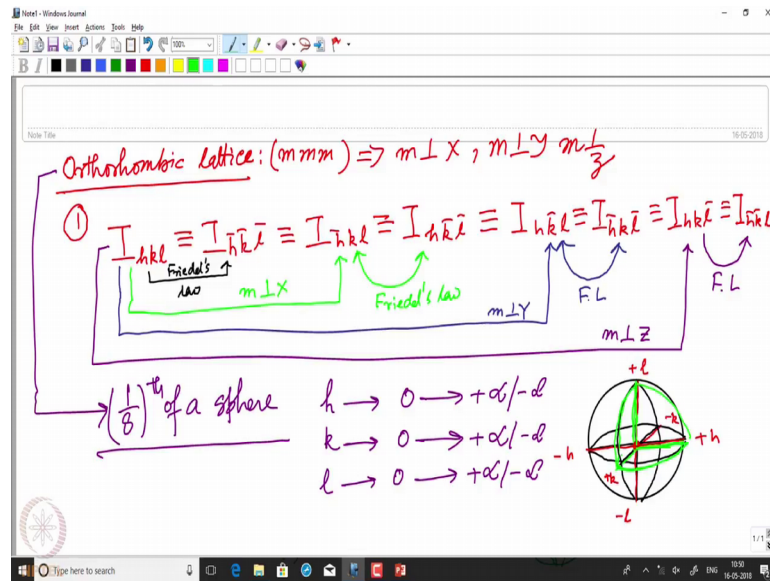 Note1 - Windows Journal
File Edit View Insert Actions Tools Help
100%
B I
Note Title
16-05-2018
Orthorhombic lattice: (mmm) => m⊥X, m⊥y m⊥z
① I_hkl ≡ I_h̄k̄l̄ ≡ I_h̄kl ≡ I_hk̄l̄ ≡ I_hk̄l ≡ I_h̄kl̄ ≡ I_hkl̄ ≡ I_h̄k̄l
Friedel's law
m⊥X
Friedel's law
m⊥Y
F.L
F.L
m⊥Z
(1/8)th of a sphere
h → 0 → +α/-α
k → 0 → +α/-α
l → 0 → +α/-α
+l
-k
+h
-h
+k
-l
1/1
Type here to search
ENG
10:50
16-05-2018